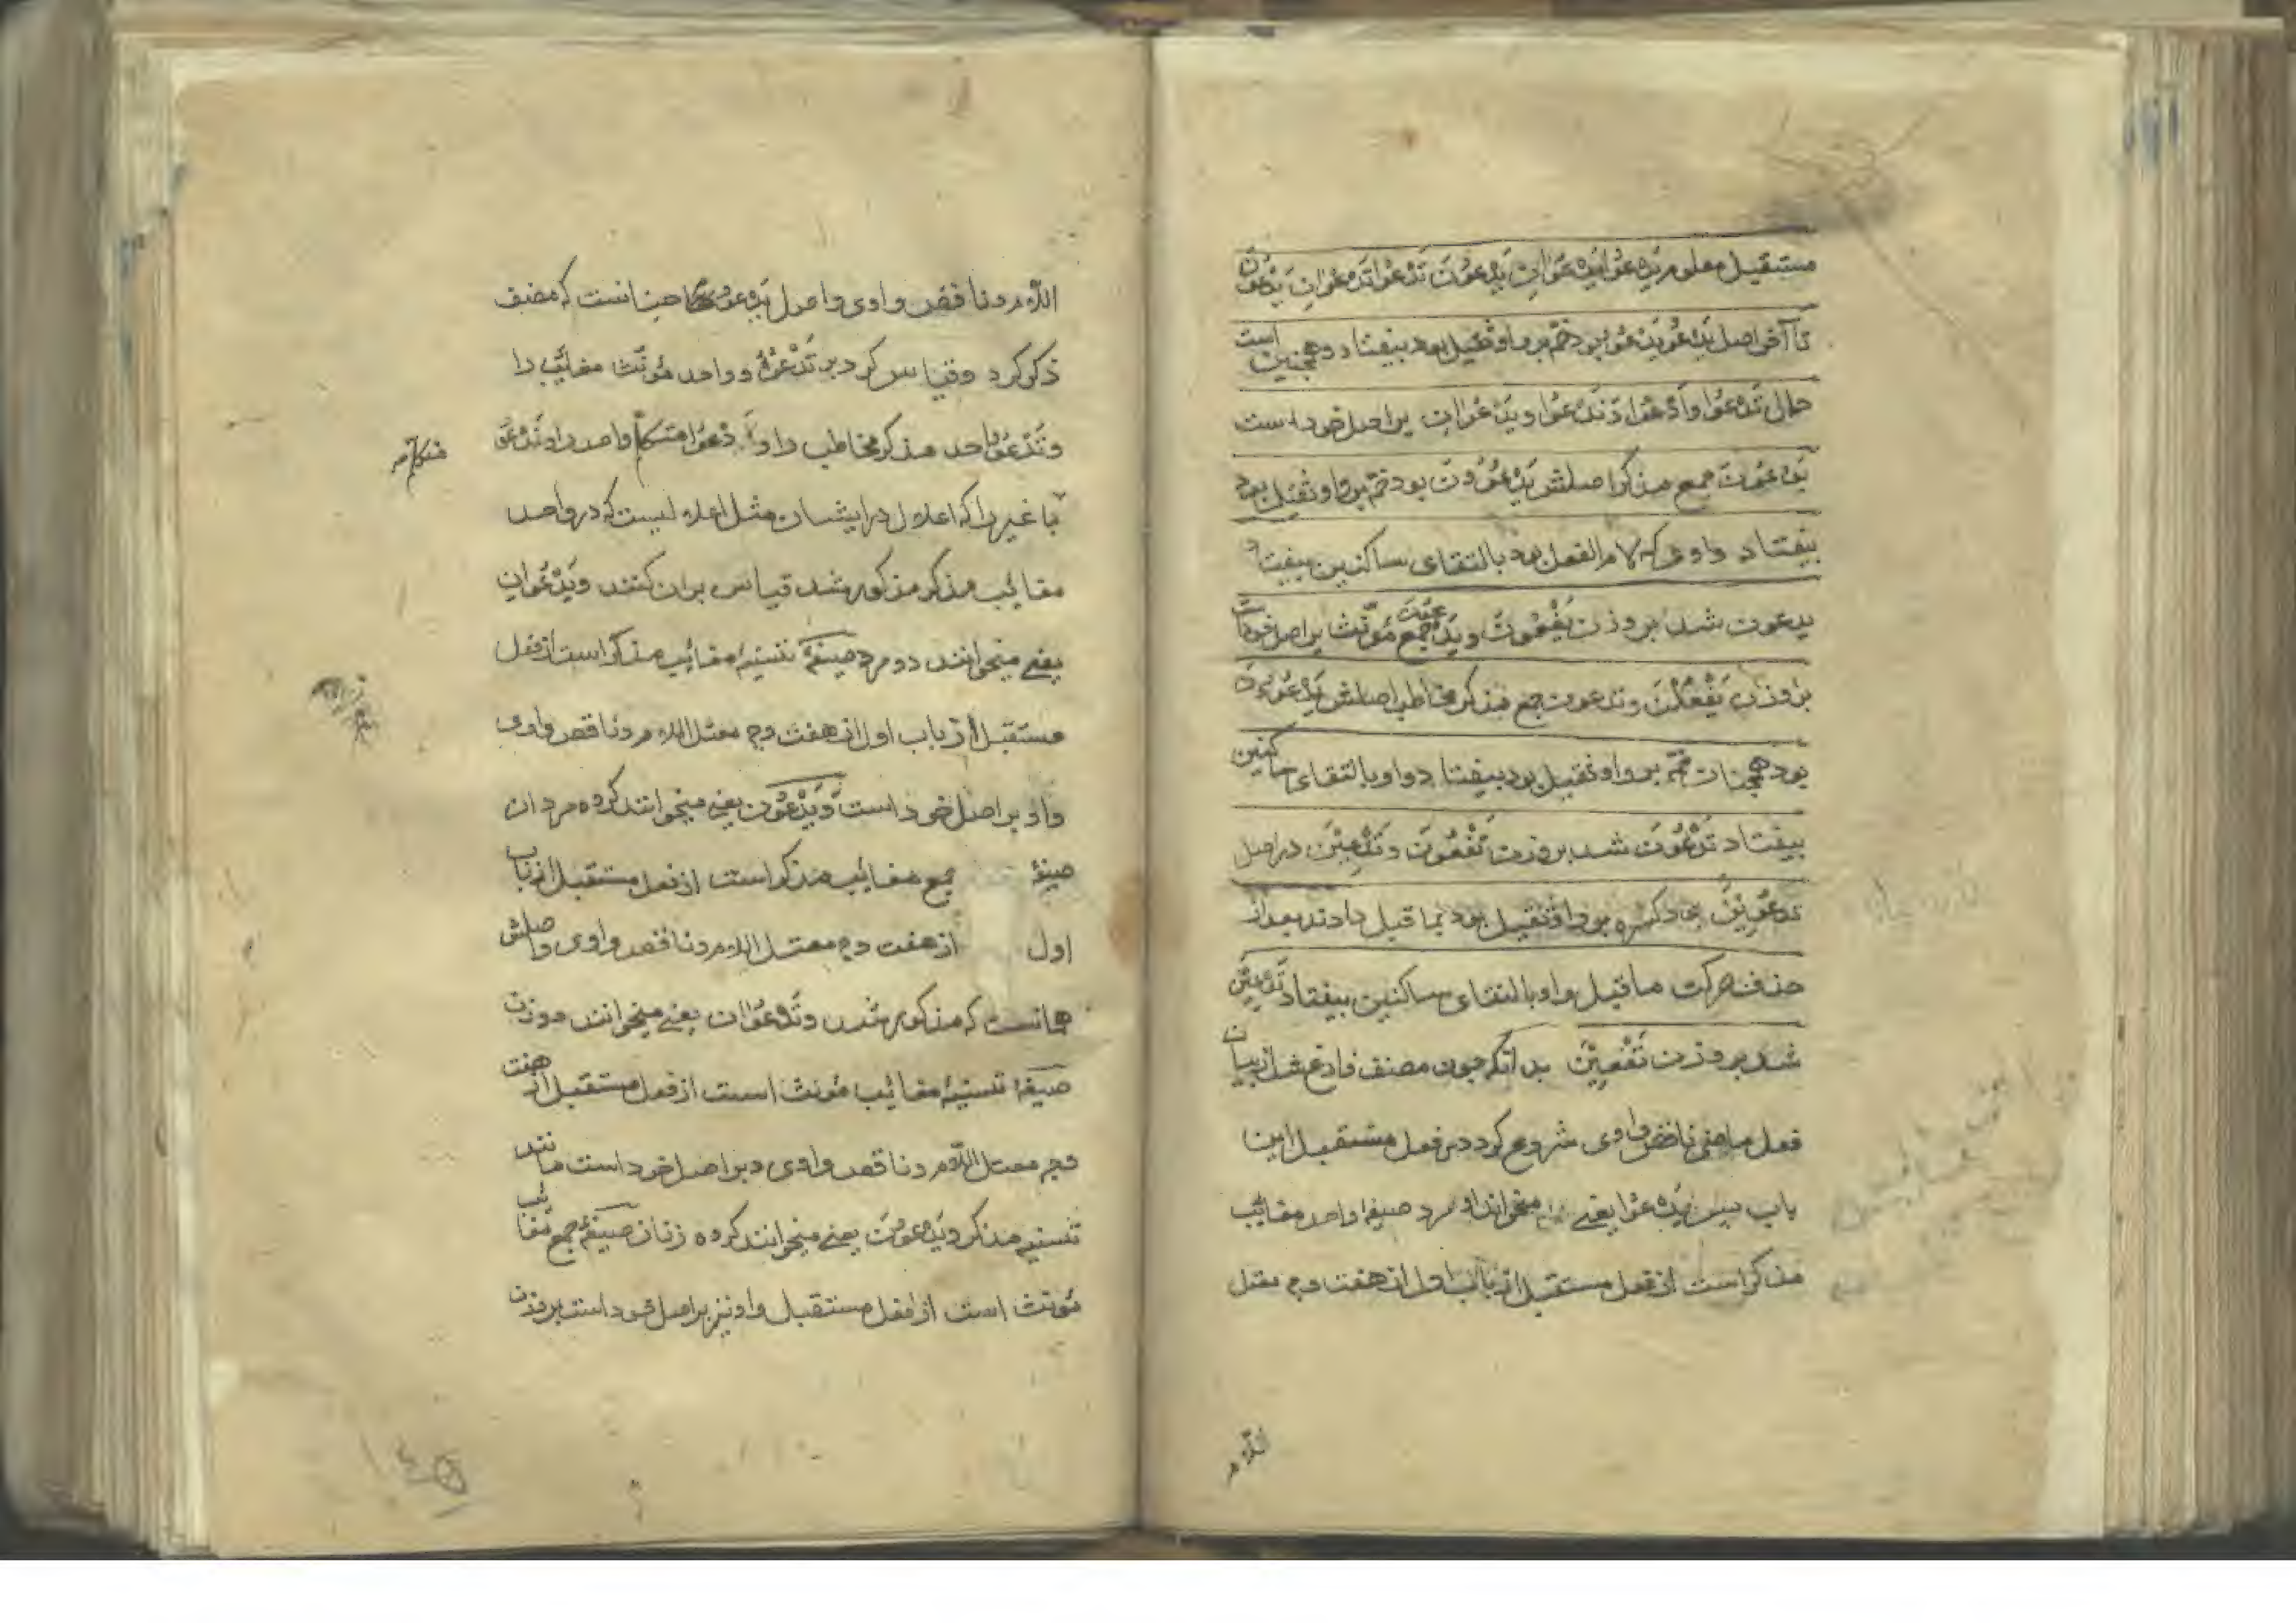 مستقبل معلوم يَدْعُوا يَدْعُوَانِ يَدْعُونَ تَدْعُوا تَدْعُوَانِ يَدْعُونَ
تا آخر اصل يَدْعُو يَدْعُوُ بود ضمّ بر واو ثقيل بود بيفتاد و همچنين است
حال تَدْعُوا وَاَدْعُوا وَنَدْعُوا و يَدْعُوَانِ بر اصل خود است
يَدْعُونَ جمع مذكر اصلش يَدْعُوُونَ بود ضمّ بر واو ثقيل بود
بيفتاد واوى كه لام الفعل بود بالتقاى ساكنين بيفتاد
يدعون شد بر وزن يَفْعُونَ و يَدْعُونَ جمع مؤنّث بر اصل خود است
بر وزن يَفْعُلْنَ وتدعون جمع مذكر مخاطب اصلش يَدْعُوُونَ
بود همچنان ضمّ بر واو ثقيل بود بيفتاد واو بالتقاى ساكنين
بيفتاد تَدْعُونَ شد بر وزن تَفْعُونَ وتَدْعِيْنَ در اصل
تدعُوِيْنَ بود كسره بر واو ثقيل بود بما قبل دادند بعد از
حذف حركت ما قبل واو بالتقاى ساكنين بيفتاد تَدْعِيْنَ
شد بر وزن تَفْعِيْنَ بدانكه چون مصنف فارغ شد از بيان
فعل ماضى ناقص واوى شروع كرد در فعل مستقبل اين
باب پس يَدْعُوا يعنے ميخواند او مرد صيغهٔ واحد مغائب
مذكر است از فعل مستقبل از باب اول از هفت وجه معتل
اللّام
اللّام و ناقص واوى و اصل يَدْعُو چنانست كه مصنف
ذكر كرد و قياس كرد بر تَدْعُوُ و واحد مؤنّث مغائب را
وتَدْعُو واحد مذكر مخاطب را و اَدْعُوا متكلم واحد را و نَدْعُو
متكلم
با غير را كه اعلال در ايشان مثل اعلاليست كه در واحد
مغائب مذكر مذكور شد قياس بر ان كنند ويَدْعُوَانِ
يعنے ميخوانند دو مرد صيغهٔ تثنيهٔ مغائب مذكر است از فعل
مستقبل از باب اول از هفت وجه معتل اللام و ناقص واوى
واو بر اصل خود است ويَدْعُوْنَ يعنے ميخوانند كروه مردان
صيغهٔ جمع مغائب مذكر است از فعل مستقبل از باب
اول از هفت وجه معتل اللام و ناقص واوى واصلش
همانست كه مذكور شد وتَدْعُوَانِ يعنے ميخوانند دو زن
صيغهٔ تثنيهٔ مغائب مؤنث است از فعل مستقبل از هفت
وجه معتل اللّام و ناقص واوى و بر اصل خود است مانند
تثنيه مذكر ويَدْعُوْنَ يعنے ميخوانند كروه زنان صيغهٔ جمع مغائب
مؤنث است از فعل مستقبل واو نيز بر اصل خود است بر وزن